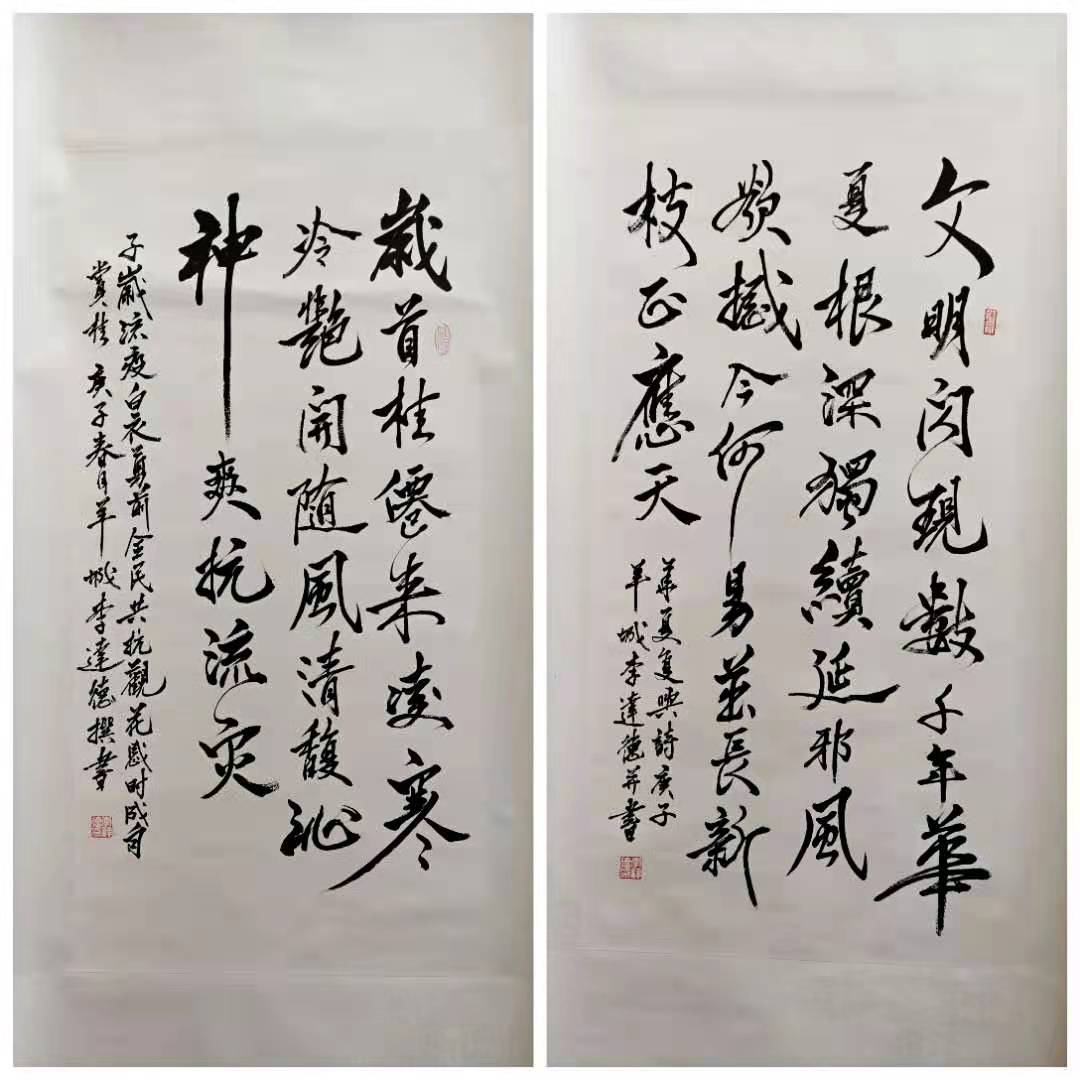 歲首桂僊来凌寒
冷艷開随風清馥沁
神爽抗流灾
子歲流疫白衣前全民共抗觀花感时成句
賞桂庚子春月羊城李達德撰書
文明闪現數千年華
夏根深獨續延邪風
撼今何易長新
枝正應天
華夏复興詩庚子
羊城李達德并書